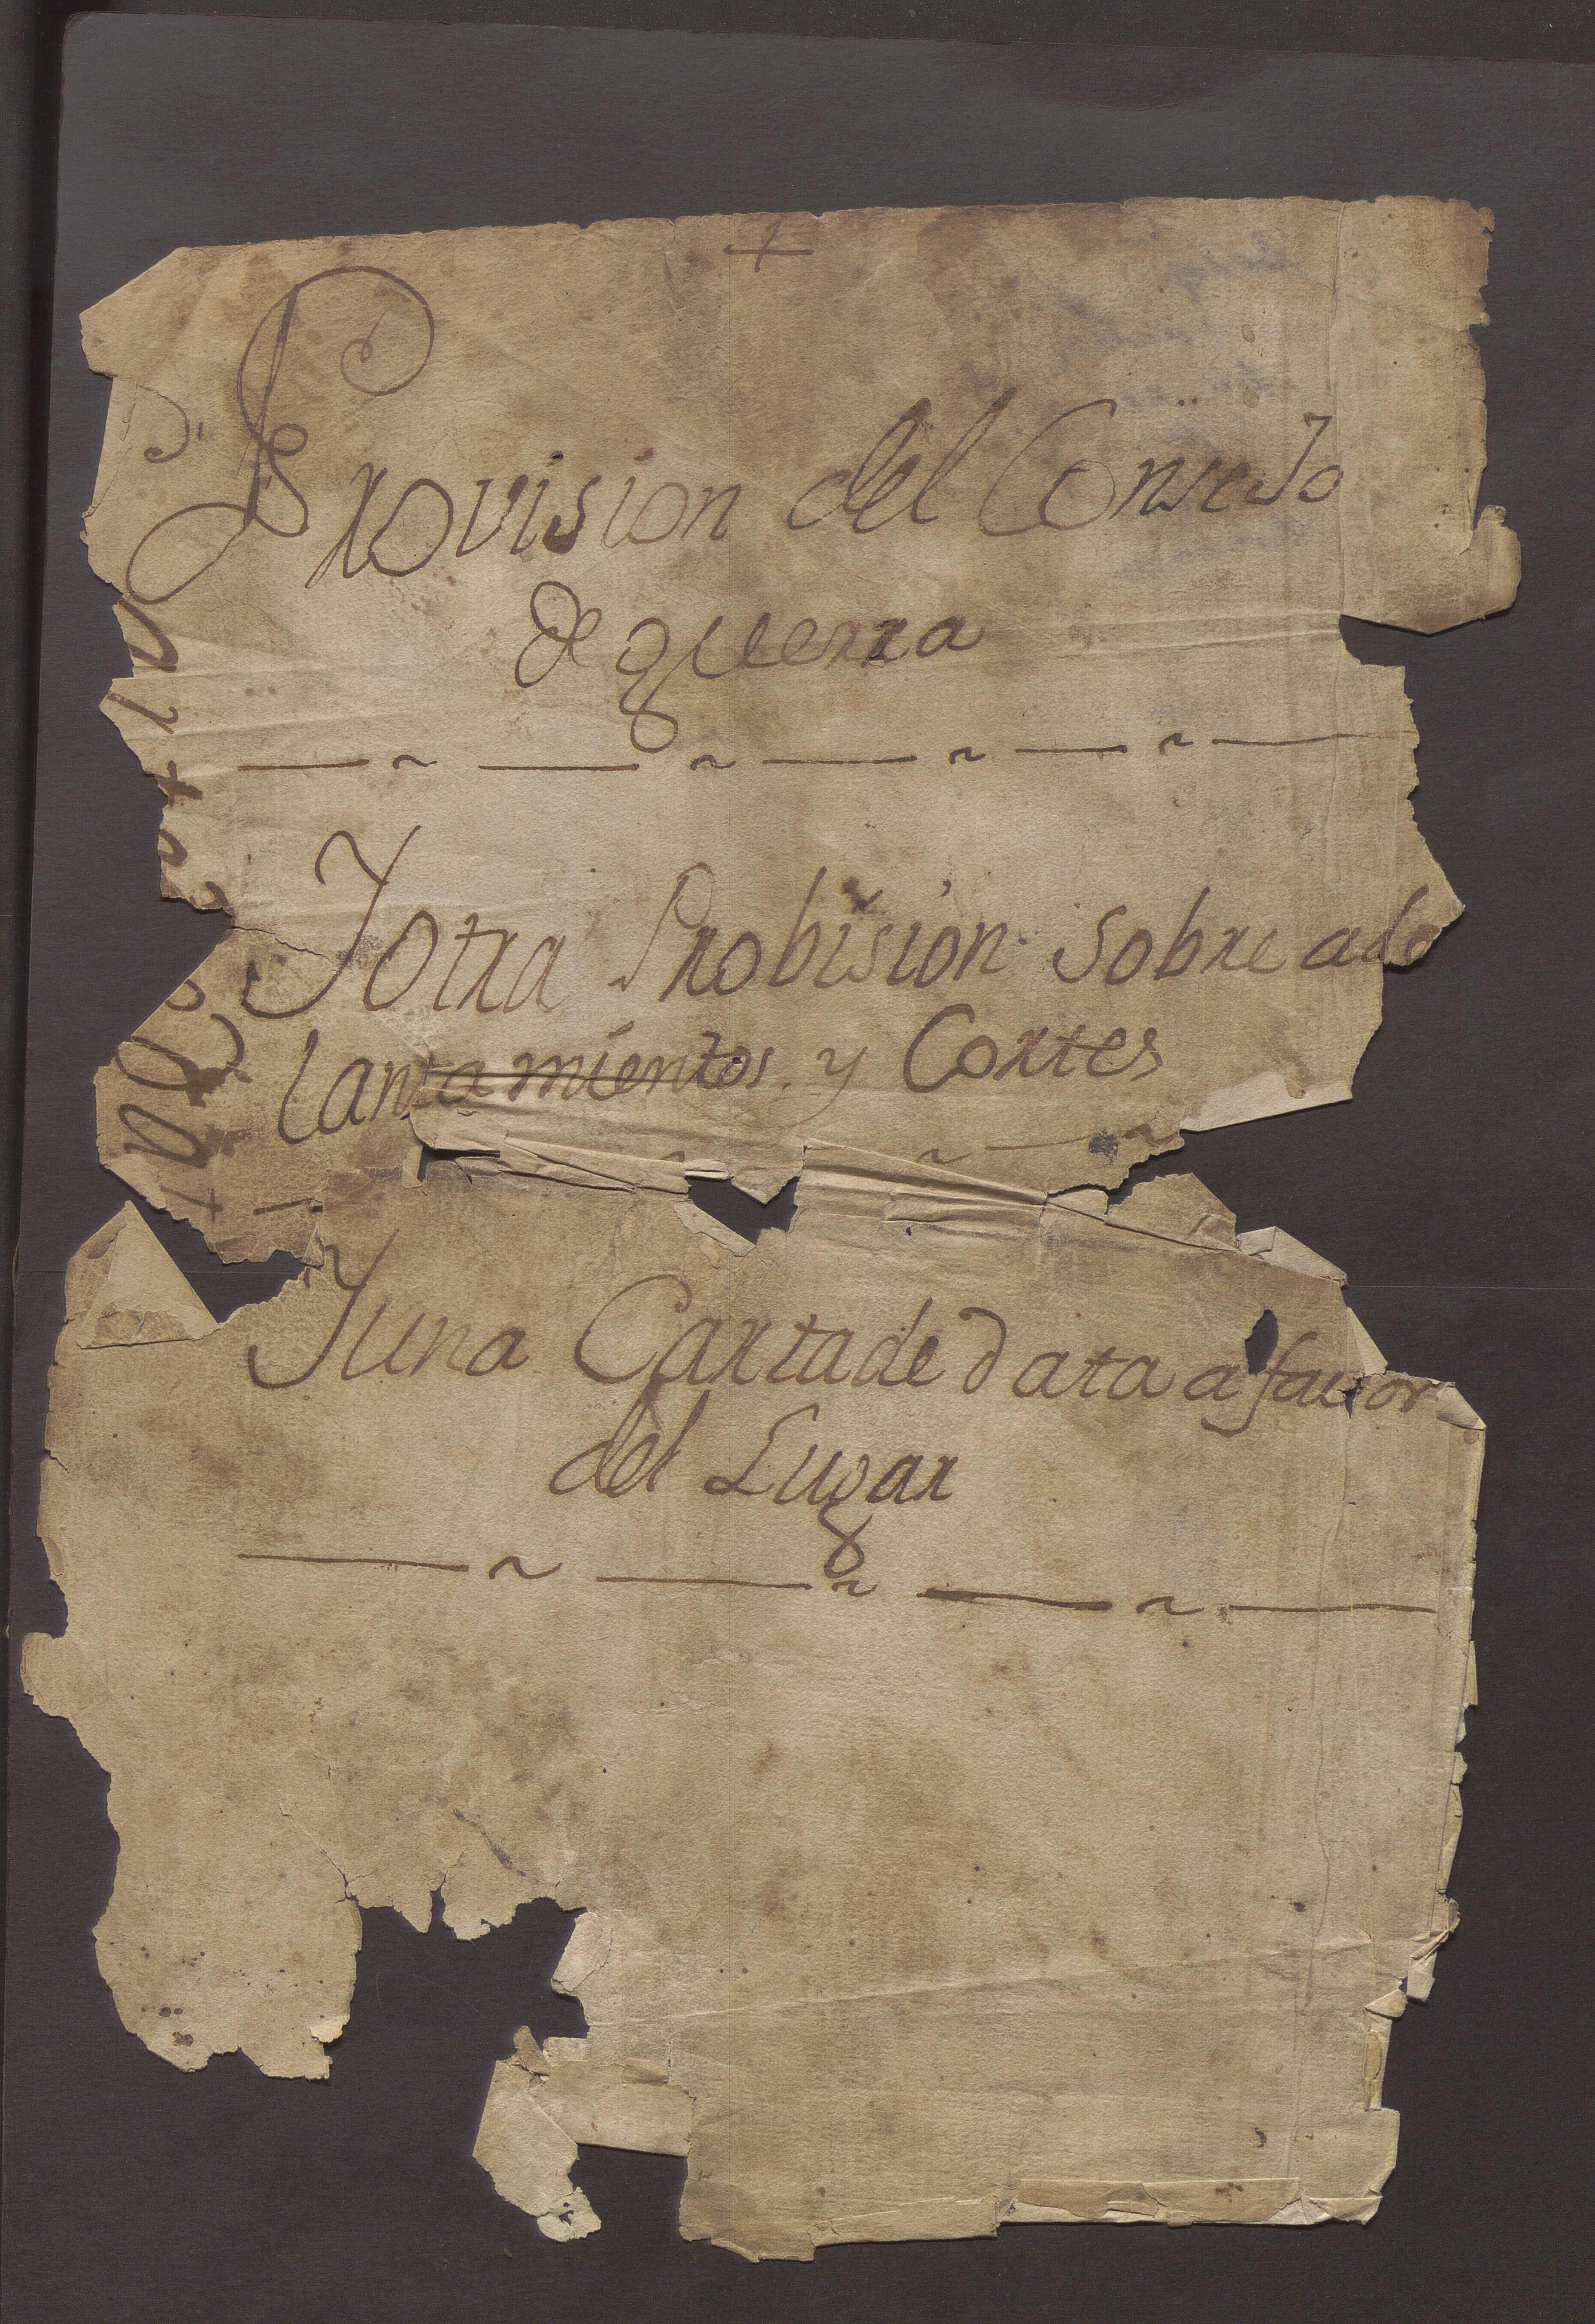 +
Provision del ConseJo
de guerra
Yotra Probision sobre ade
lantamientos y Cortes
Yuna Cartade data a fauor
del Lugar